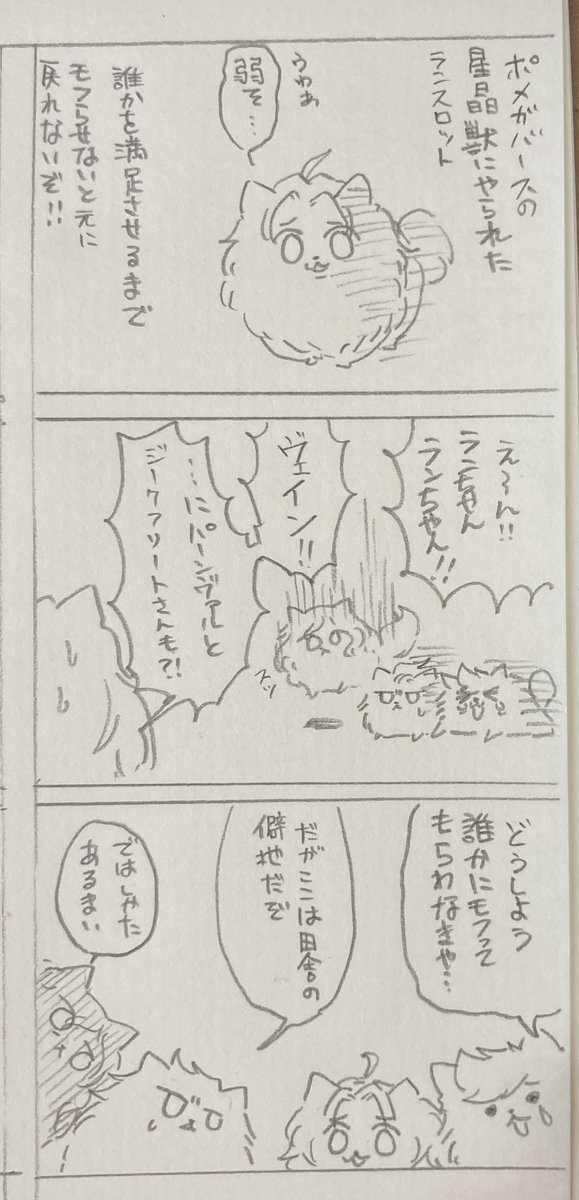 ポメガバースの
星晶獣にやられた
ランスロット
うわぁ
弱そ…
誰かを満足させるまで
モフらせないと元に
戻れないぞ!!
え〜ん!!
ランちゃん
ランちゃん!!
ヴェイン!!
…にパーシヴァルと
ジークフリートさんも?!
どうしよう
誰かにモフって
もらわなきゃ…
だがここは田舎の
僻地だぞ
ではしかた
あるまい